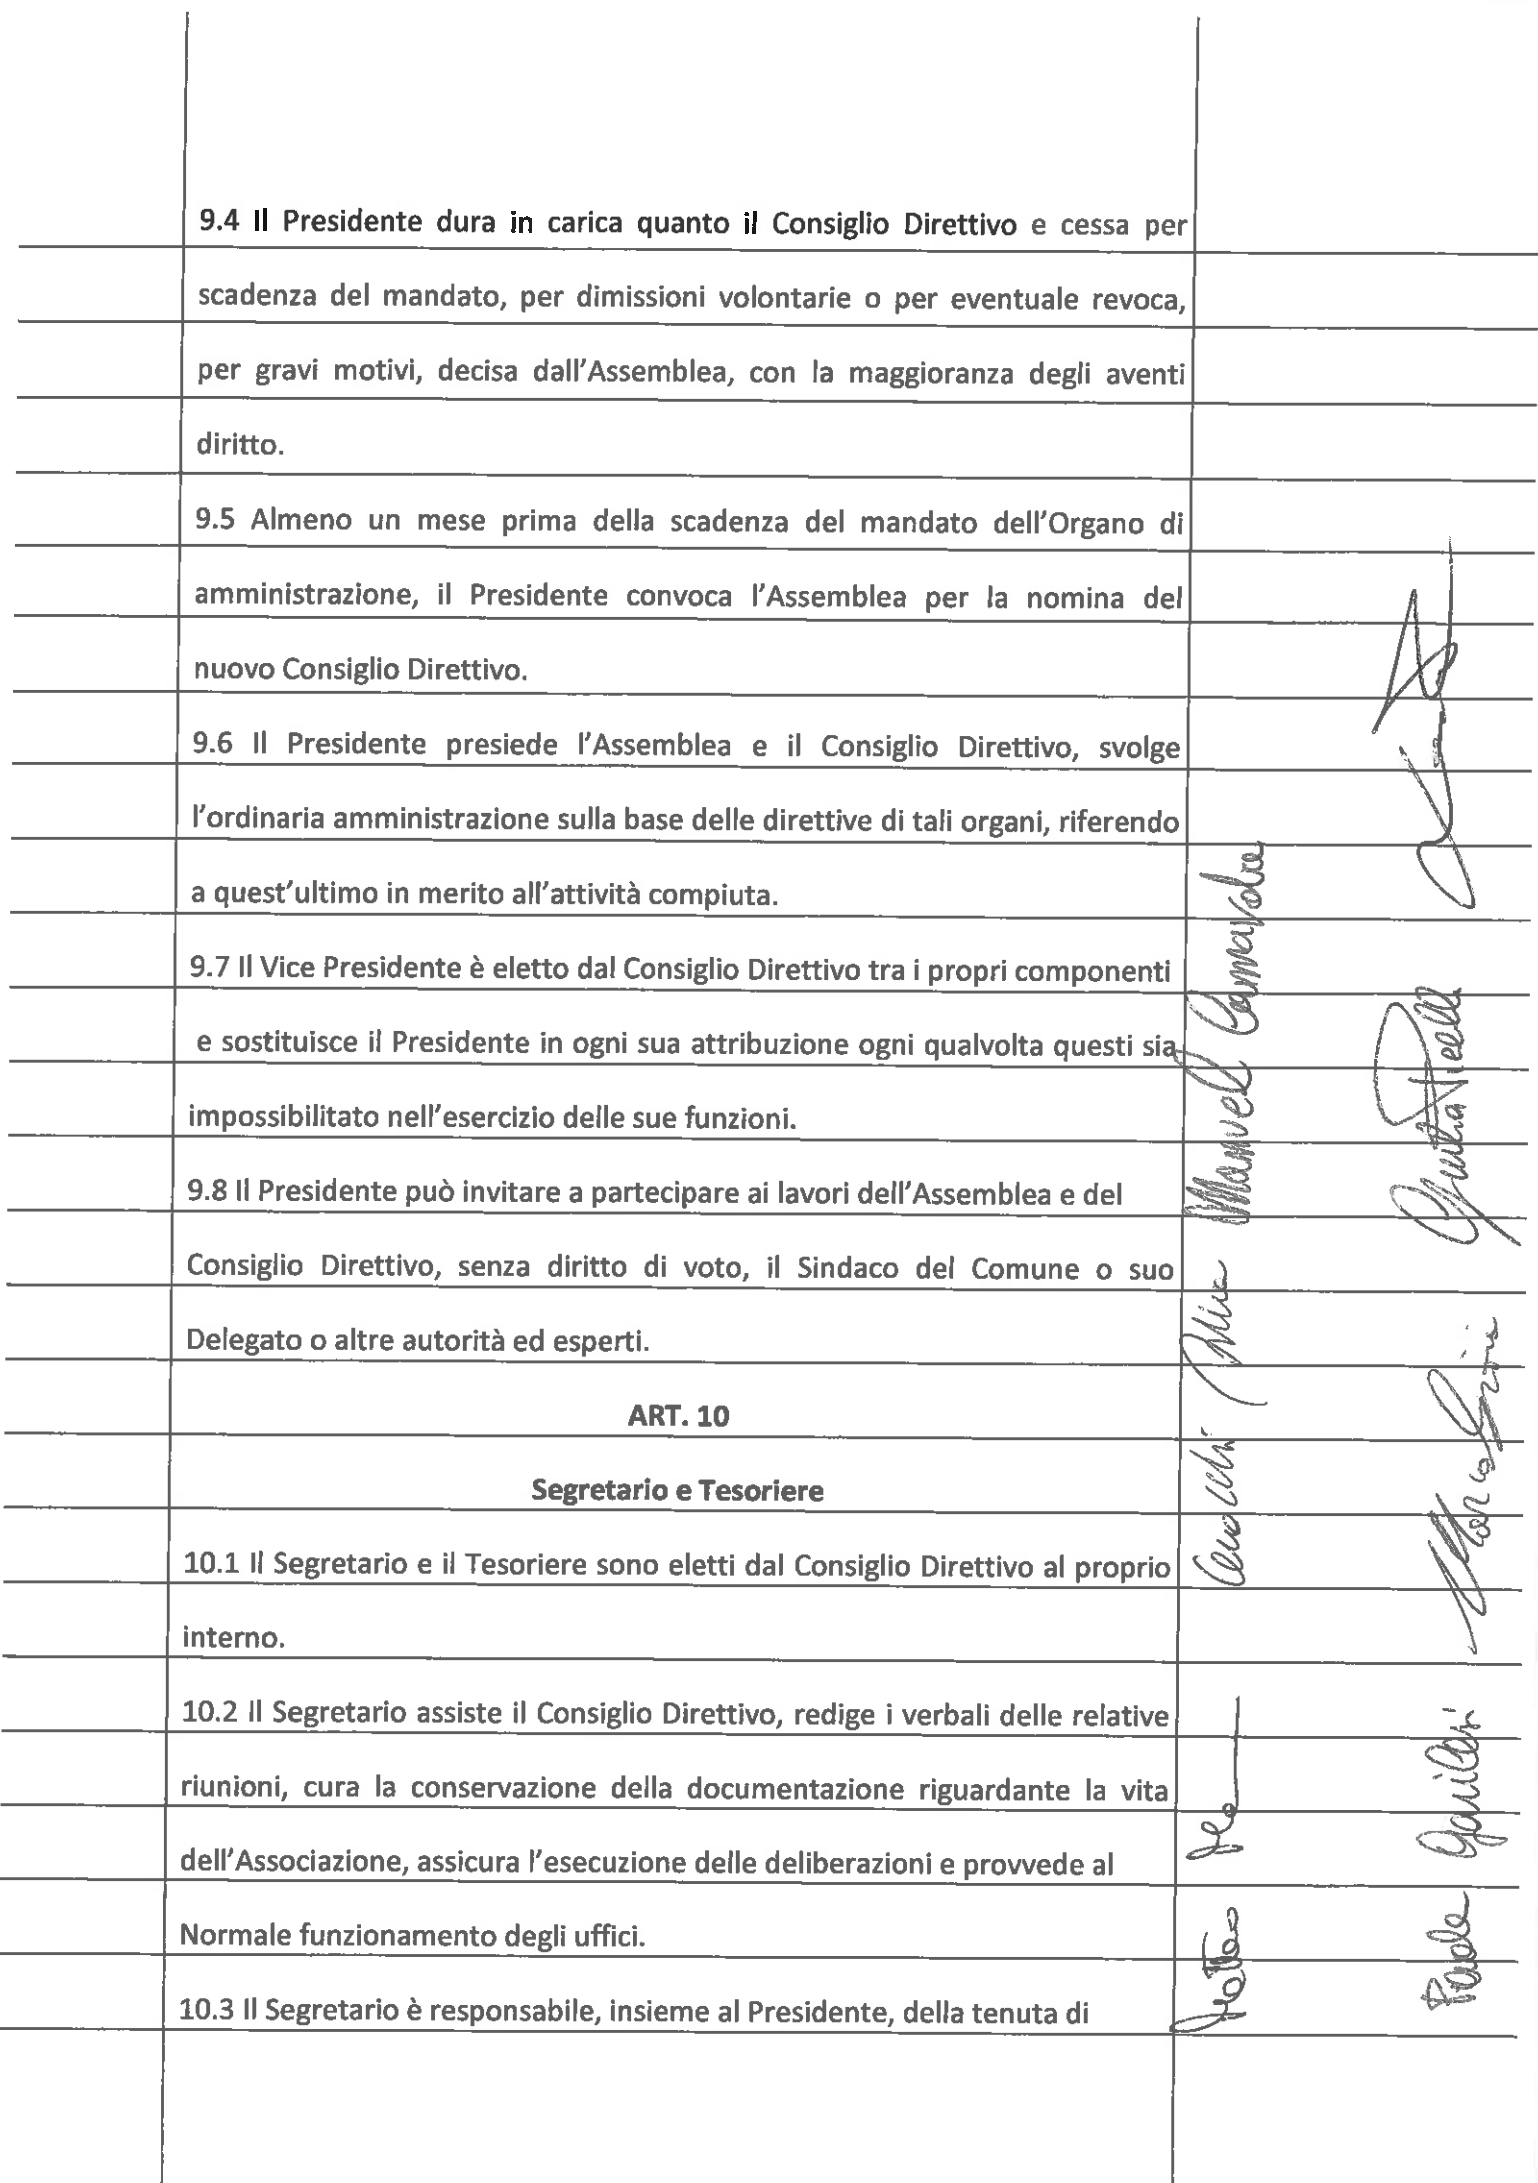 9.4 Il Presidente dura in carica quanto il Consiglio Direttivo e cessa per
scadenza del mandato, per dimissioni volontarie o per eventuale revoca,
per gravi motivi, decisa dall'Assemblea, con la maggioranza degli aventi
diritto.
9.5 Almeno un mese prima della scadenza del mandato dell'Organo di
amministrazione, il Presidente convoca l'Assemblea per la nomina del
nuovo Consiglio Direttivo.
9.6 Il Presidente presiede l'Assemblea e il Consiglio Direttivo, svolge
l'ordinaria amministrazione sulla base delle direttive di tali organi, riferendo
a quest'ultimo in merito all'attività compiuta.
9.7 Il Vice Presidente è eletto dal Consiglio Direttivo tra i propri componenti
e sostituisce il Presidente in ogni sua attribuzione ogni qualvolta questi sia
impossibilitato nell'esercizio delle sue funzioni.
9.8 Il Presidente può invitare a partecipare ai lavori dell'Assemblea e del
Consiglio Direttivo, senza diritto di voto, il Sindaco del Comune o suo
Delegato o altre autorità ed esperti.
ART. 10
Segretario e Tesoriere
10.1 Il Segretario e il Tesoriere sono eletti dal Consiglio Direttivo al proprio
interno.
10.2 Il Segretario assiste il Consiglio Direttivo, redige i verbali delle relative
riunioni, cura la conservazione della documentazione riguardante la vita
dell'Associazione, assicura l'esecuzione delle deliberazioni e provvede al
Normale funzionamento degli uffici.
10.3 Il Segretario è responsabile, insieme al Presidente, della tenuta di
Manuel
Giulia
Marco
Paola